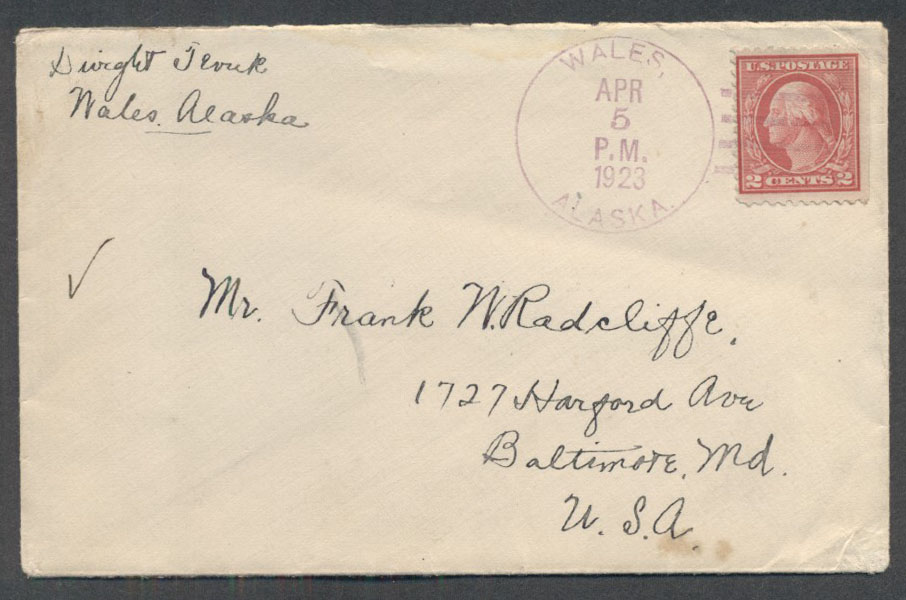 Dwight Tevuk
Wales. Alaska
WALES,
APR
5
P.M.
1923
ALASKA.
U.S. POSTAGE
2 CENTS 2
Mr. Frank W. Radcliffe,
1727 Harford Ave
Baltimore, Md.
U. S. A.